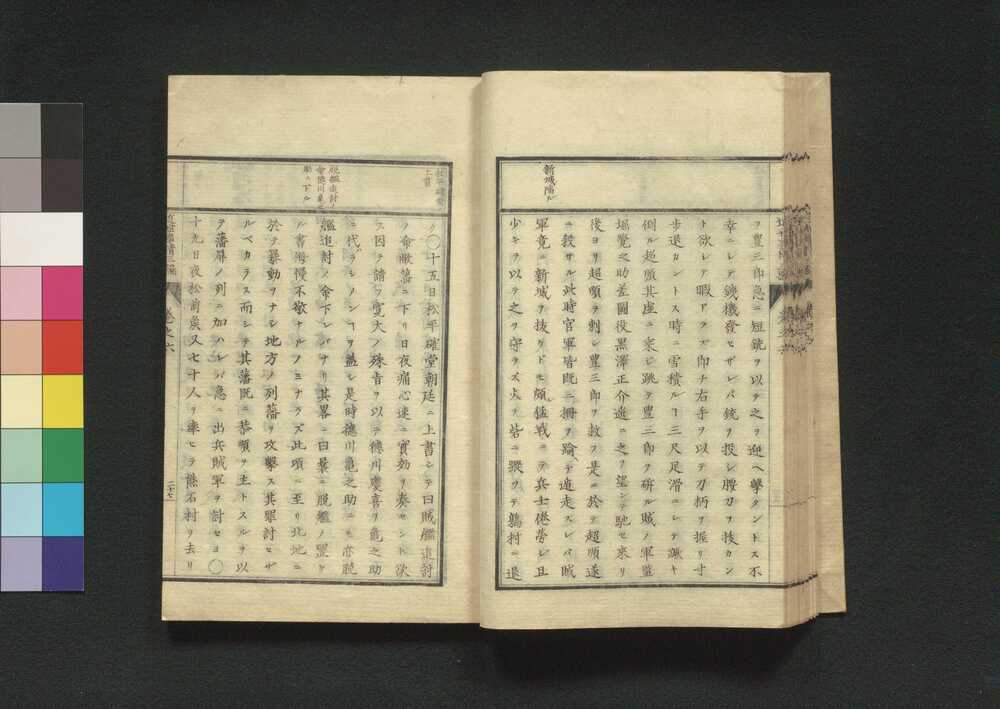 新城陥ル
ヲ豊三郎急ニ短銃ヲ以テ之ヲ迎ヘ撃タントス不
幸ニシテ鐖機發セザレバ銃ヲ投シ腰刀ヲ抜カン
ト欲シテ暇アラズ即チ右手ヲ以テ刀柄ヲ握リ寸
歩退カントス時ニ雪積ルヿ三尺足滑ニシテ蹶キ
倒ル超順其座ニ乗シ跳テ豊三郎ヲ斫ル賊ノ軍監
堀覺之助差圖役黒澤正介遙ニ之ヲ望ンテ馳セ来リ
後ヨリ超順ヲ刺シ豊三郎ヲ救フ是ニ於テ超順遂
ニ殺サル此時官軍皆既ニ柵ヲ踰テ遠走スレバ賊
軍竟ニ新城ヲ抜クト𪜈頗ル猛戦ニテ兵士倦労シ且
少キヲ以テ之ヲ守ラズ火ヲ砦ニ縱ツテ鶉村ニ退
上書
脱艦追討ノ
命徳川亀之
助ニ下ル
ク○十五日松平確堂朝廷ニ上書シテ曰賊艦追討
ノ命敝藩ニ下リ日夜痛心速ニ實効ヲ奏セント欲
ス因テ請フ寛大ノ殊旨ヲ以テ德川慶喜ヲ亀之助
ニ代ラシメンコヲ蓋シ是時德川亀之助ニモ亦脱
艦追討ノ命下レバナリ其畧ニ曰曩ニ脱艦ノ罪
ル書侮慢不敬ナルノミナラズ此頃ニ至リ北地ニ
於テ暴動ヲナシ地方ノ列藩ヲ攻擊ス其罪討セザ
ルベカラス而シテ其藩既ニ恭順ヲ主トスルヲ以
ヲ藩屏ノ列ニ加ハレバ急ニ出兵賊軍ヲ討セヨ○
十九日夜松前矦又七十人ヲ率ヒテ熊石村ヲ去リ
卷之六
二十七